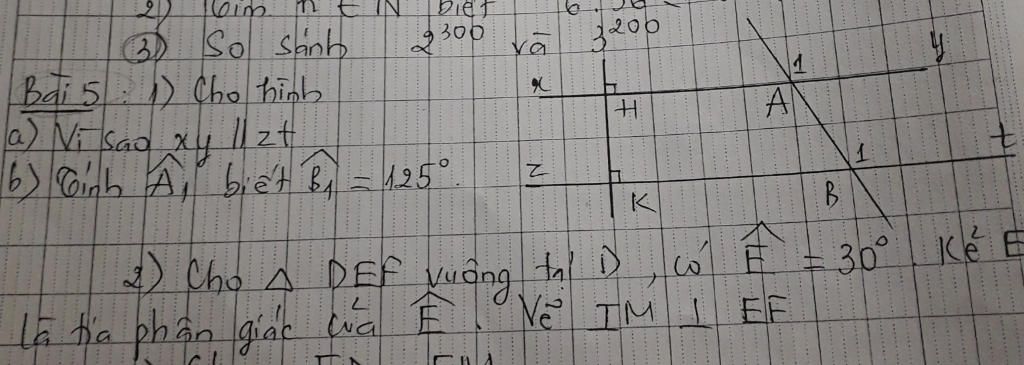 2) Tìm n ∈ N biết
③ So sánh 2^300 và 3^200
Bài 5: 1) Cho hình
a) Vì sao xy // zt
b) Tính Â₁, biết B̂₁ = 125°.
x H A 1 y
z K B 1 t
2) Cho Δ DEF vuông tại D, có Ê = 30° Kẻ E
là tia phân giác của Ê. Vẽ IM ⊥ EF